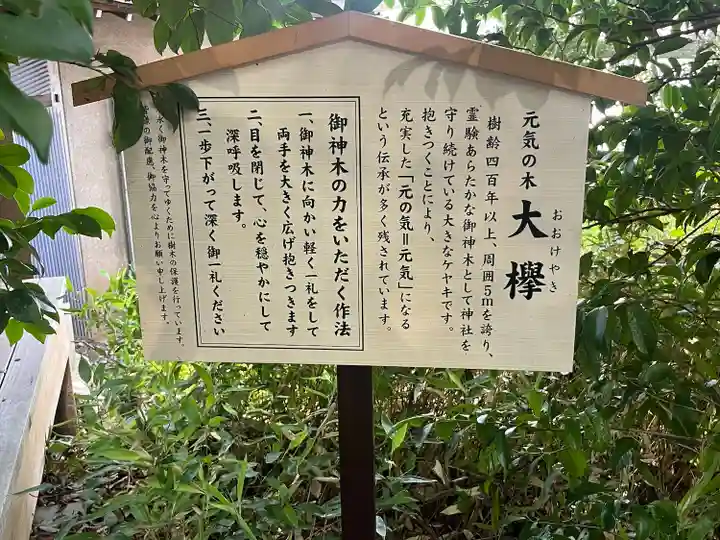 元気の木
大欅
おおけやき
樹齢四百年以上、周囲5mを誇り、
霊験あらたかな御神木として神社を
守り続けている大きなケヤキです。
抱きつくことにより、
充実した「元の気＝元気」になる
という伝承が多く残されています。
御神木の力をいただく作法
一、御神木に向かい軽く一礼をして
両手を大きく広げ抱きつきます
二、目を閉じて、心を穏やかにして
深呼吸します。
三、一歩下がって深く御一礼ください
永く御神木を守ってゆくために樹木の保護を行っています。
の御配慮、御協力を心よりお願い申し上げます。